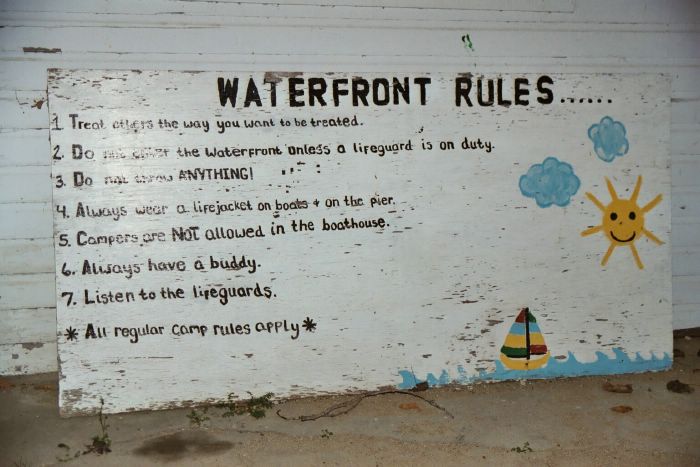 WATERFRONT RULES......
1. Treat others the way you want to be treated.
2. Do not enter the Waterfront unless a lifeguard is on duty.
3. Do not throw ANYTHING!
4. Always wear a lifejacket on boats + on the pier.
5. Campers are NOT allowed in the boathouse.
6. Always have a buddy.
7. Listen to the lifeguards.
* All regular camp rules apply *